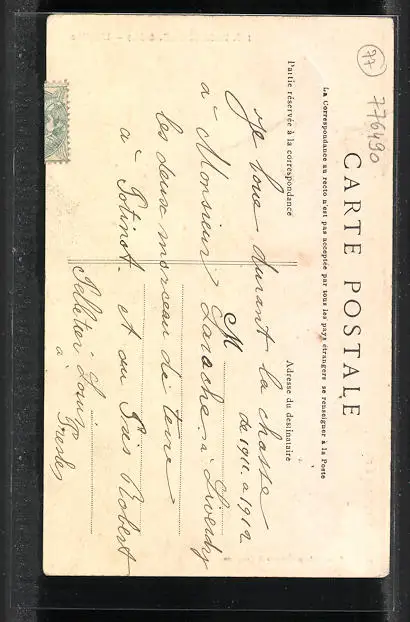 77
776490
CARTE POSTALE
La Correspondance au recto n'est pas acceptée par tous les pays étrangers se renseigner à la Poste
Partie réservée à la correspondance
Adresse du destinataire
M
Je loue durant la chasse
de 1911 a 1912
à Monsieur Laroche à Liverdy
les deux morceau de terre
à et du Robert
Pelletier Louis
a Presles